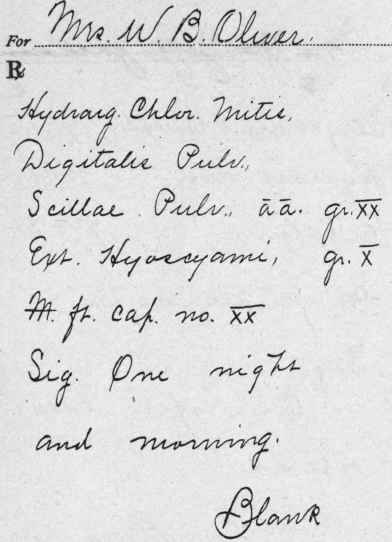 For Mrs. W. B. Oliver.
℞
Hydrarg. Chlor. Mitis,
Digitalis Pulv.,
Scillae Pulv., āā. gr. x̅x̅
Ext. Hyoscyami, gr. x̅
M. ft. cap. no. x̅x̅
Sig. One night
and morning.
Blank